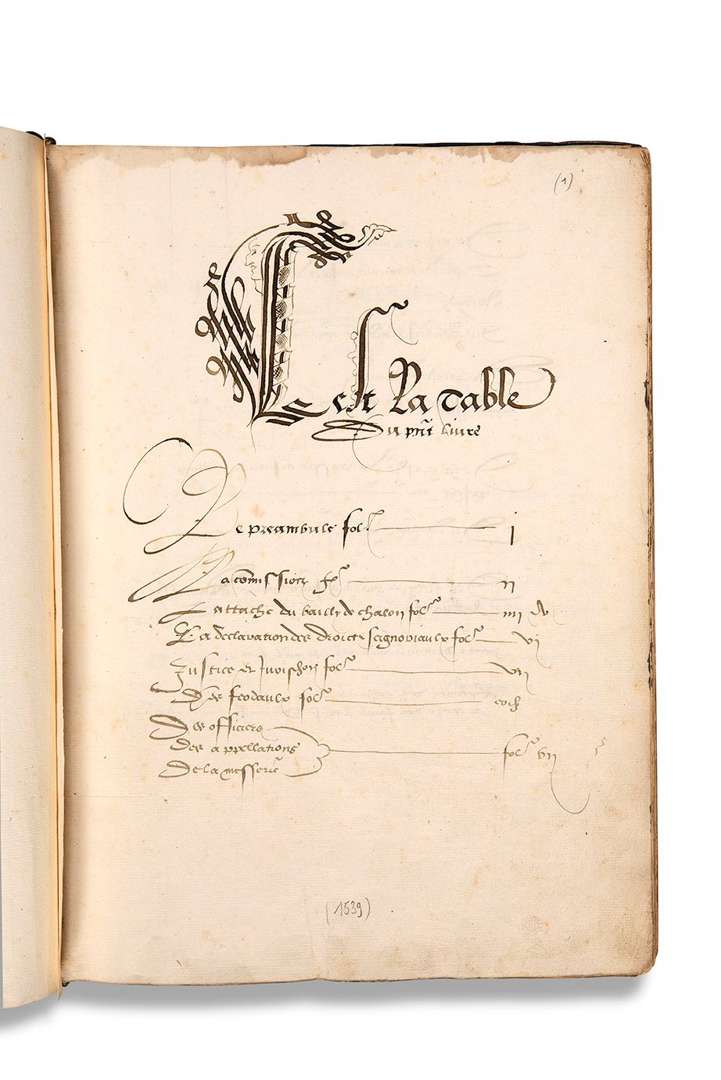 (1)
C'est La table
Du pnt livre
Le preambule fol j
La comission fol ii
Lattache du bailly de chalon fol iiii
La declaration des droictz seignoriaulx fol vi
Justice et Jurisdion fol vii
Des feodaulx fol
Des officiers
des appellations fol vii
De la messerie
(1539)